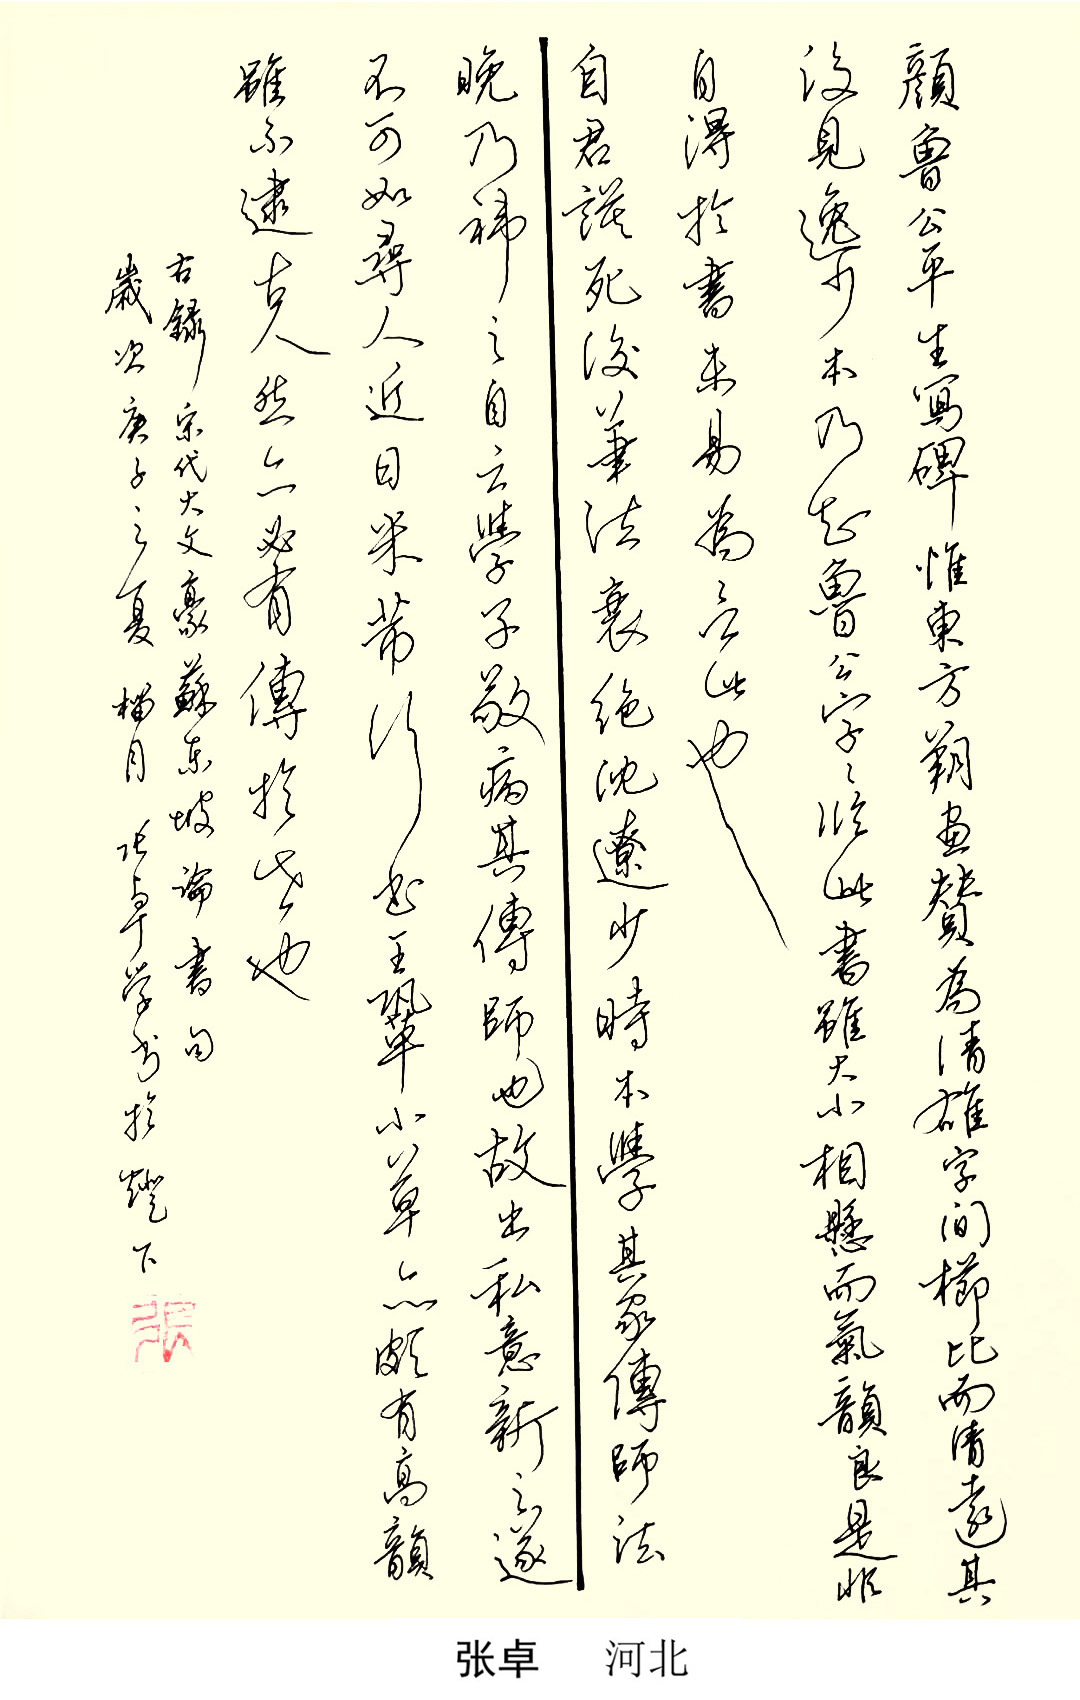 顔魯公平生寫碑惟東方朔畫贊為清雄字間櫛比而清遠其
後見逸少本乃知魯公字字臨此書雖大小相懸而氣韻良是非
自得於書未易為言此也
自君謨死後筆法衰絶沈遼少時本學其家傳師法
晚乃祕之自云學子敬病其傳師也故出私意新之遂
不可如尋人近日米芾行書王鞏小草亦頗有高韻
雖不逮古人然亦必有傳於世也
右録宗代大文豪蘇东坡論書句
歲次庚子之夏榴月张卓学书於燈下
张
张卓 河北